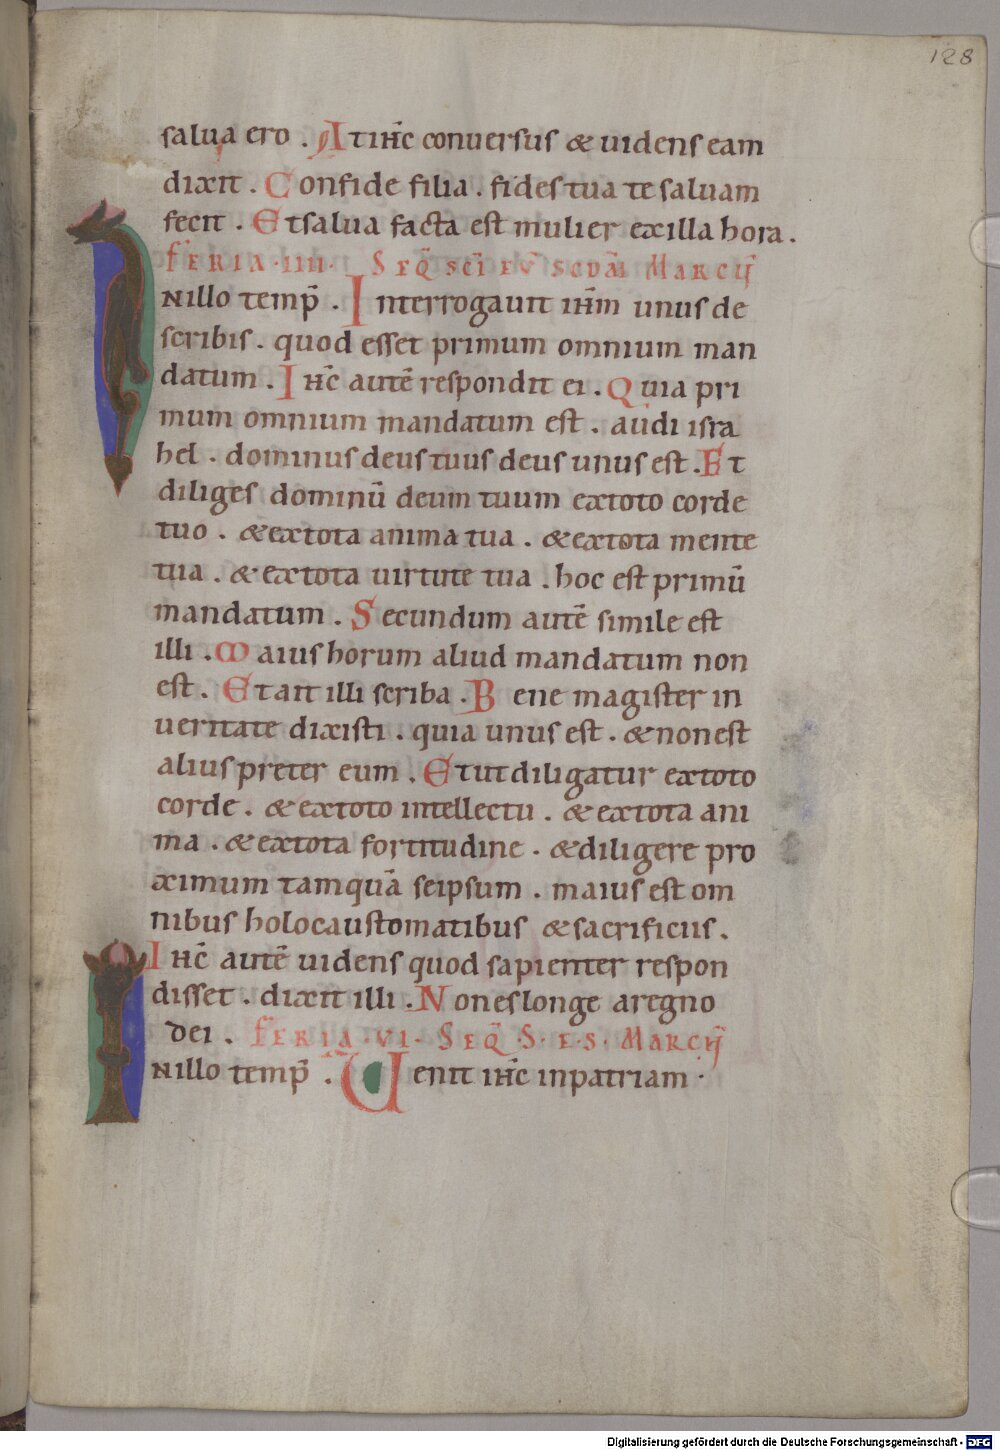 128
salua ero . At ihc̄ conuersus & uidens eam
dixit . Confide filia . fides tua te saluam
fecit . Et salua facta est mulier ex illa hora .
FERIA · IIII · SEQ̄ SC̄I EV̄ SCDĀM MARCIJ
IN illo temp̄ . Interrogauit ihm̄ unus de
scribis . quod esset primum omnium man
datum . Ihc̄ autē respondit ei . Quia pri
mum omnium mandatum est . audi isra
hel . dominus deus tuus deus unus est . Et
diliges dominū deum tuum ex toto corde
tuo . & ex tota anima tua . & ex tota mente
tua . & ex tota uirtute tua . hoc est primū
mandatum . Secundum autē simile est
illi . Maius horum aliud mandatum non
est . Et ait illi scriba . Bene magister in
ueritate dixisti . quia unus est . & non est
alius preter eum . Et ut diligatur ex toto
corde . & ex toto intellectu . & ex tota ani
ma . & ex tota fortitudine . & diligere pro
ximum tamquā seipsum . maius est om
nibus holocaustomatibus & sacrificiis .
Ihc̄ autē uidens quod sapienter respon
disset . dixit illi . Non es longe a regno
dei . FERIA · VI · SEQ̄ · S · E · S · MARCIJ
IN illo temp̄ . Uenit ihc̄ in patriam ·
Digitalisierung gefördert durch die Deutsche Forschungsgemeinschaft - DFG